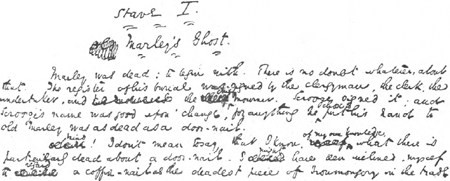 Stave I.
Marley's Ghost.
Marley was dead: to begin with. There is no doubt whatever, about
that. The register of his burial was signed by the clergyman, the clerk, the
undertaker, and the chief mourner. Scrooge signed it. And
Scrooge's name was good upon 'change, for anything he put his hand to
old Marley was as dead as a door-nail.
Mind! I don't mean to say, that I know, of my own knowledge, what there is
particularly dead about a door-nail. I might have been inclined, myself
to regard a coffin-nail as the deadest piece of ironmongery in the trade